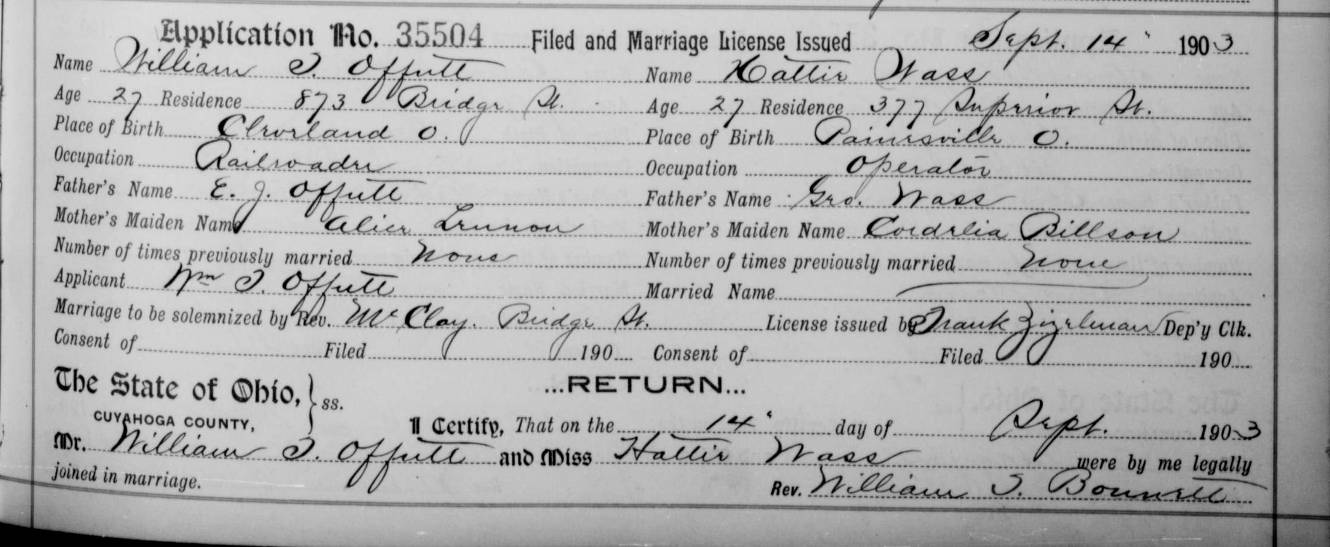 Application No. 35504 Filed and Marriage License Issued Sept. 14 1903
Name William T. Offutt Name Hattie Wass
Age 27 Residence 873 Bridge St. Age 27 Residence 377 Superior St.
Place of Birth Cleveland O. Place of Birth Painesville O.
Occupation Railroader Occupation Operator
Father's Name E. J. Offutt Father's Name Geo. Wass
Mother's Maiden Name Alice Lennon Mother's Maiden Name Cordelia Billson
Number of times previously married None Number of times previously married None
Applicant Wm T. Offutt Married Name
Marriage to be solemnized by Rev. McClay. Bridge St. License issued by Frank Zizelman Dep'y Clk.
Consent of Filed 190 Consent of Filed 190
The State of Ohio, } ss. ...RETURN...
CUYAHOGA COUNTY, I Certify, That on the 14 day of Sept. 1903
Mr. William T. Offutt and Miss Hattie Wass were by me legally
joined in marriage. Rev. William T. Bonnell